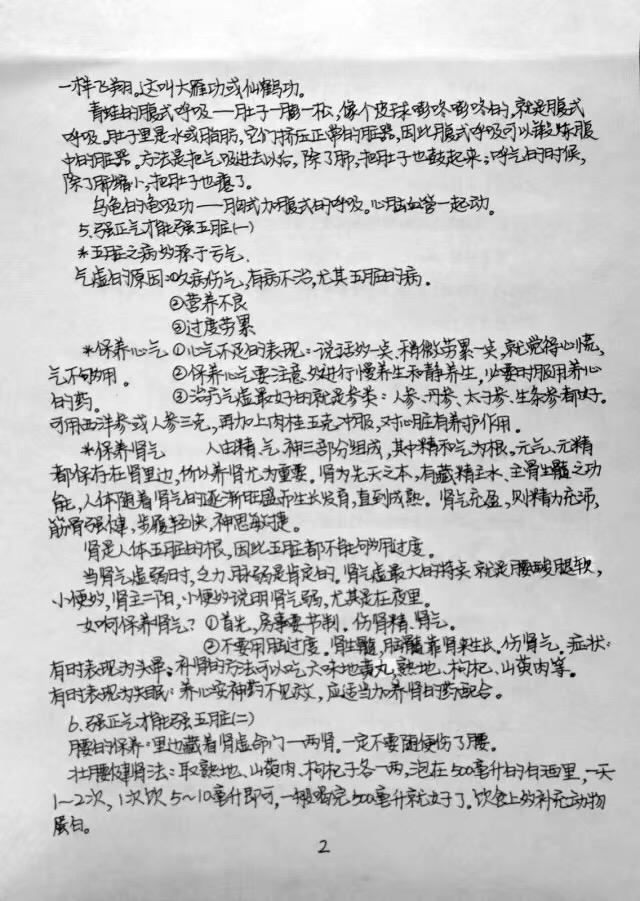 一样飞翔。这叫大雁功或仙鹤功。
青蛙的腹式呼吸——肚子一膨一松,像个皮球嘭咚嘭咚的,就是腹式
呼吸。肚子里是水或脂肪,它们挤压正常的脏器,因此腹式呼吸可以锻炼腹
中的脏器。方法是把气吸进去以后,除了肺,把肚子也鼓起来;呼气的时候,
除了肺缩小,把肚子也瘪了。
乌色的龟吸功——胸式加腹式的呼吸。心脑血管一起动。
5.强正气才能强五脏(一)
*五脏之病始源于亏气.
气虚的原因:①久病伤气,有病不治,尤其五脏的病。
②营养不良
③过度劳累
*保养心气 ①心气不足的表现:说话多一点、稍微劳累一点,就觉得心慌,
气不够用。 ②保养心气要注意多进行慢养生和静养生,必要时服用养心
的药。 ③治疗气虚最好的就是参类:人参、丹参、太子参、生条参都好。
可用西洋参或人参三克,再加上肉桂五克冲服,对心脏有养护作用。
*保养肾气 人由精气神三部分组成,其中精和气为根。元气、元精
都保存在肾里边,所以养肾尤为重要。肾为先天之本,有藏精主水、主骨生髓之功
能,人体随着肾气的逐渐旺盛而生长发育,直到成熟。肾气充盈,则精力充沛,
筋骨强健,步履轻快,神思敏捷。
肾是人体五脏的根,因此五脏都不能够用过度。
当肾气虚弱时,乏力、脉弱是肯定的。肾气虚最大的特点就是腰酸腿软,
小便多,肾主二阳,小便多说明肾气弱,尤其是在夜里。
如何保养肾气? ①首先,房事要节制。伤肾精、肾气。
②不要用脑过度。肾生髓,脑髓靠肾来生长。伤肾气。症状:
有时表现为头晕。补肾的方法可以吃六味地黄丸,熟地、枸杞、山萸肉等。
有时表现为失眠:养心安神药不见效,应适当加养肾的药配合。
6.强正气才能强五脏(二)
腰的保养:里边藏着肾虚命门一两肾。一定不要随便伤了腰。
壮腰健肾法:取熟地、山萸肉、枸杞子各一两,泡在500毫升的白酒里,一天
1~2次,1次饮5~10毫升即可,一般喝完500毫升就好了。饮食上多补充动物
蛋白。
2